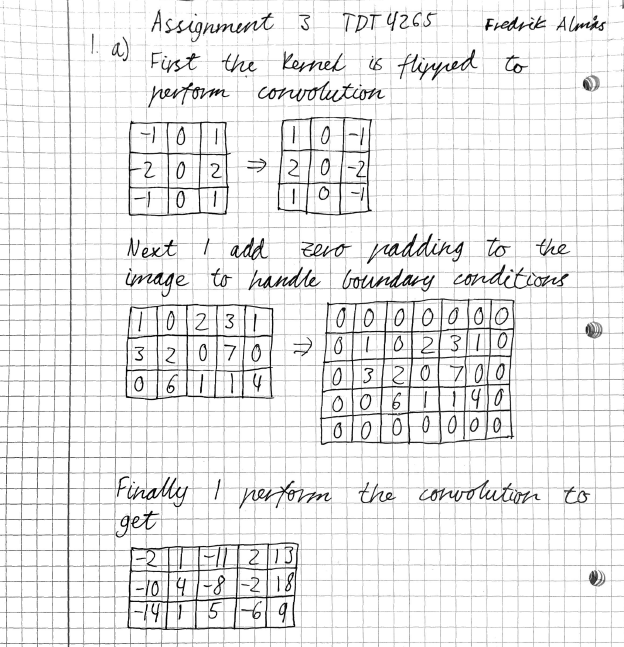 Assignment 3 TDT4265 Fredrik Almås
1. a) First the kernel is flipped to
perform convolution
-1 0 1 1 0 -1
-2 0 2 ⇒ 2 0 -2
-1 0 1 1 0 -1
Next I add zero padding to the
image to handle boundary conditions
1 0 2 3 1
3 2 0 7 0
0 6 1 1 4
⇒
0 0 0 0 0 0 0
0 1 0 2 3 1 0
0 3 2 0 7 0 0
0 0 6 1 1 4 0
0 0 0 0 0 0 0
Finally I perform the convolution to
get
-2 1 -11 2 13
-10 4 -8 -2 18
-14 1 5 -6 9